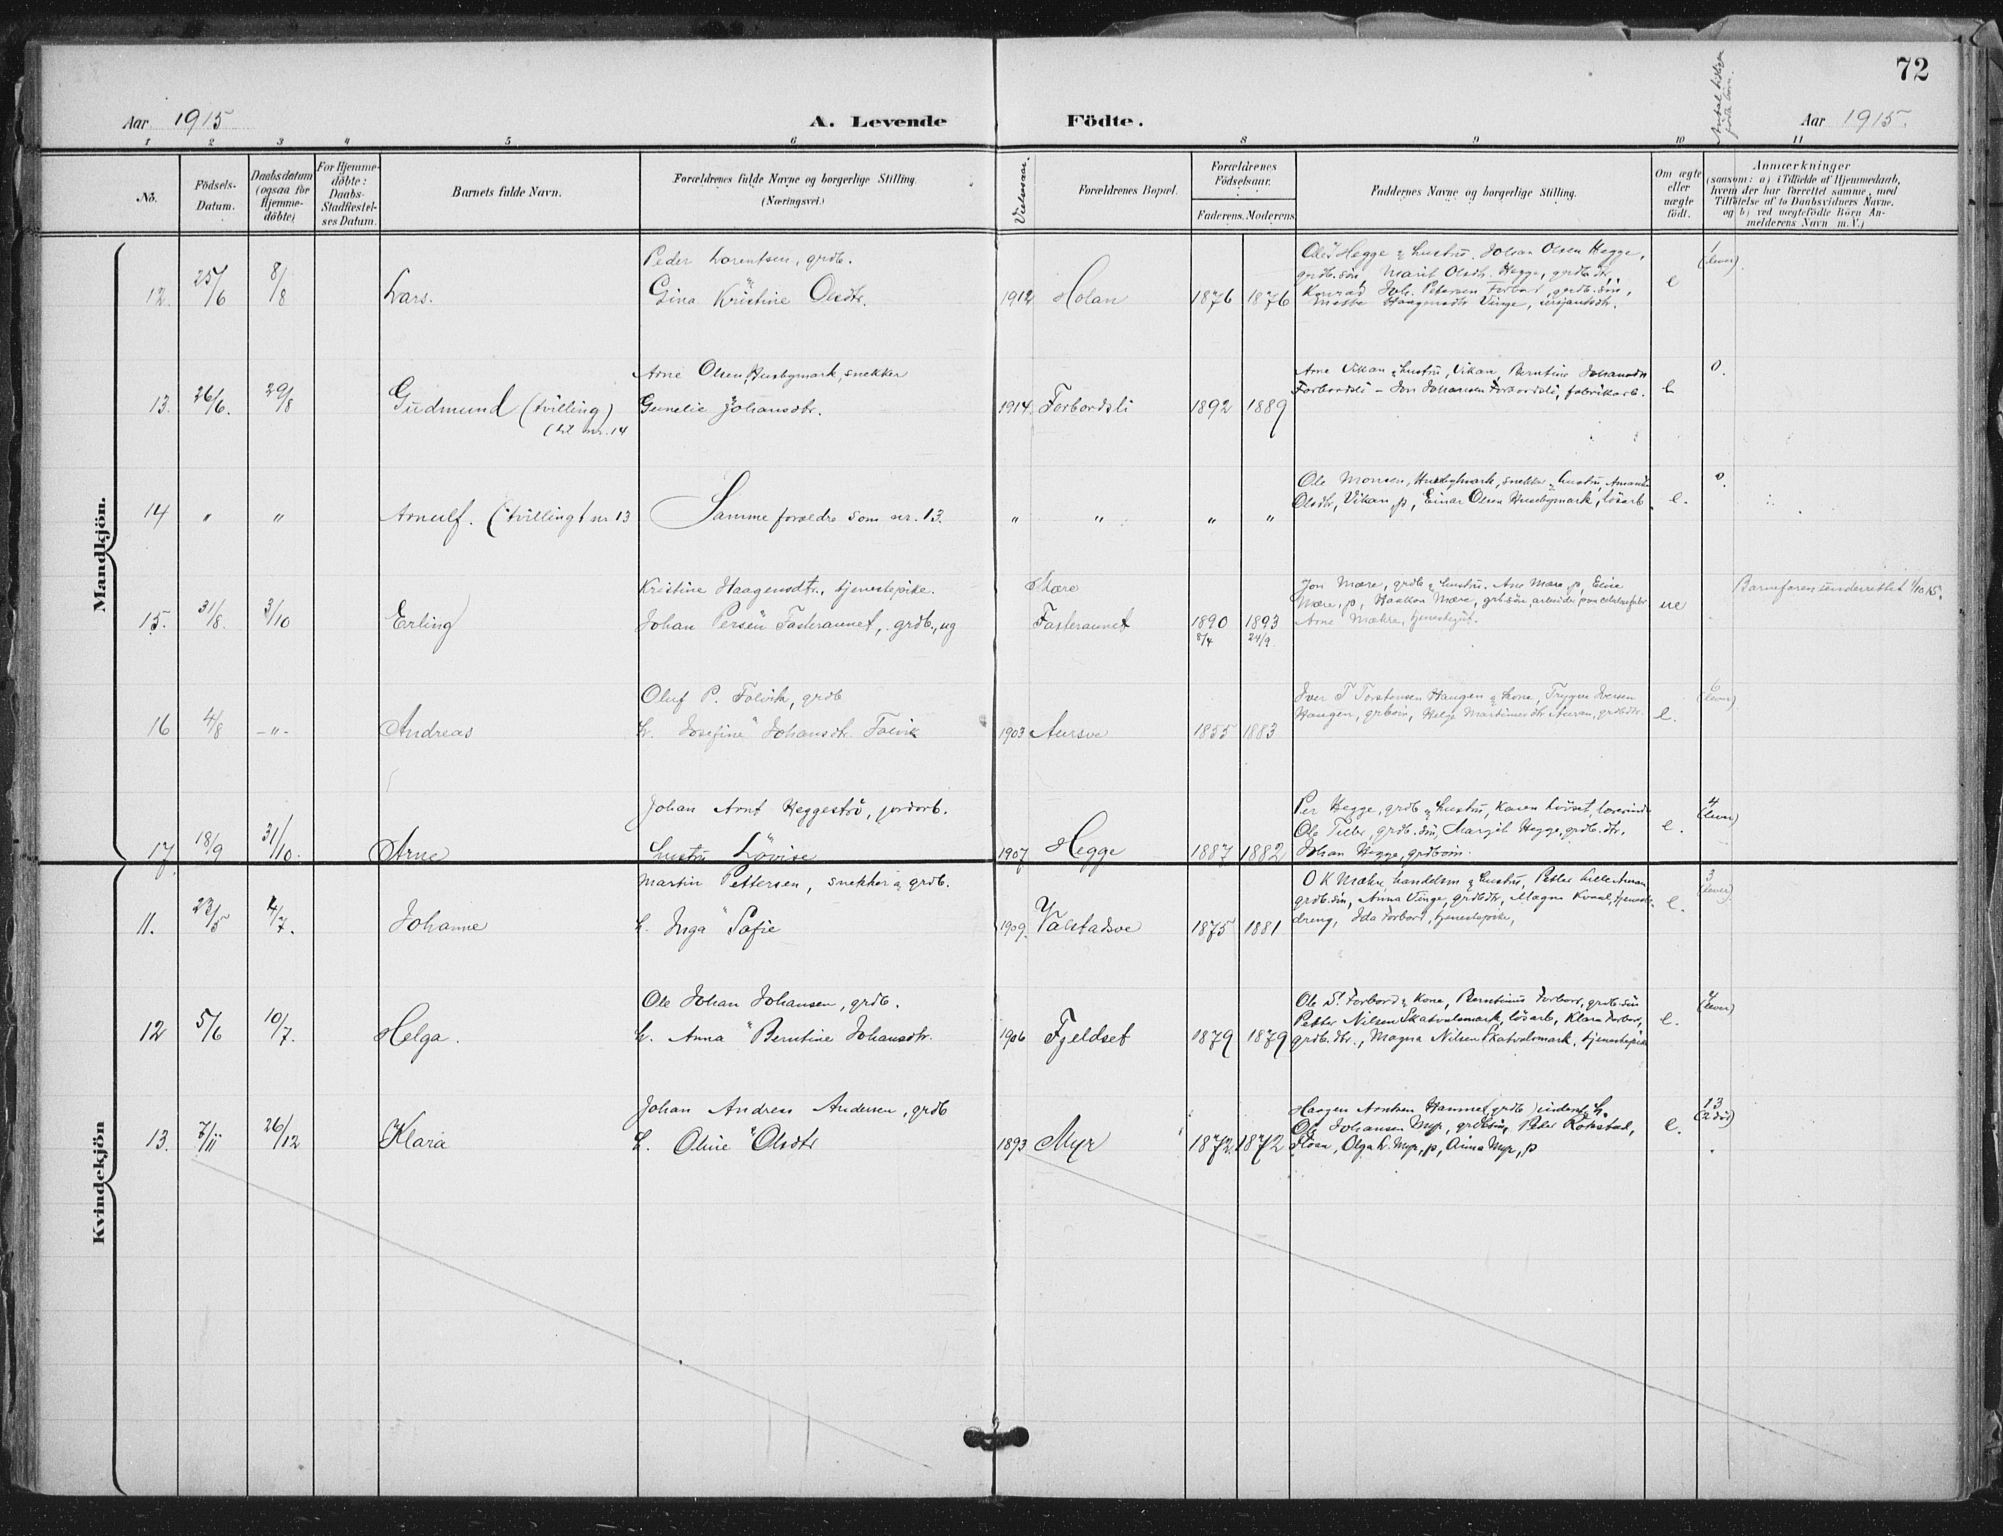 72
Aar 1915
A. Levende
Födte.
Antal
Aar 1915.
1 2 3 4 5 6 8 9 10 11
No.
Födsels-
Datum.
Daabsdatum
(ogsaa for
Hjemme-
döbte)
For Hjemme-
döbte:
Daabs-
Stadfæstel-
ses Datum.
Barnets fulde Navn.
Forældrenes fulde Navne og borgerlige Stilling.
(Næringsvei.)
Vielsesaar.
Forældrenes Bopæl.
Forældrenes
Födselsaar.
Faderens. Moderens
Faddernes Navne og borgerlige Stilling.
Om ægte
eller
uægte
födt.
Anmærkninger
(saasom: a) i Tilfælde af Hjemmedaab,
hvem der har forrettet samme, med
Tilföielse af to Daabsvidners Navne.
og b) ved uægtefödte Börn An-
melderens Navn m. V.)
Mandkjön.
12. 25/6 8/8 Lars.
Peder Lorentsen, grdb.
Gina Kristine Olsdtr.
1912 Holan 1876 1876
Hegge & hustru, Johan Olsen Hegge,
grdb.sön, Marit Olsdtr. Hegge, grdb.dtr,
Konrad Joh. Petersen Forbord, grdb.sön,
Haagensdtr Vinge,
e
1
(lever).
13. 26/6. 29/8 Gudmund (tvilling)
(til nr. 14
Arne Olsen Husbymark, snekker
Gunelie Johansdtr.
1914 Forbordsli 1892 1889
Arne Vikan & hustru, Vikan, Berntine Johansdtr
Forbordsli – Jon Johansen Forbordsli, fabrikarb.
e
0.
14 " " Arnulf. (tvilling t nr. 13
Samme forældre som nr. 13.
" " " "
Ole Monsen, Husbymark, snekker & hustru, Amanda
Olsdtr, Vikan, p, Einar Olsen Husbymark, lösarb.
e.
0.
15. 31/8. 3/10 Erling
Kristine Haagensdtr., tjenestepike.
Johan Persen Fasteraunet, grdb., ug
Mære
Fasteraunet 1890 1893
8/4 24/9
Jon Mære, grdb & hustru. Ane Mære, p, Elise
Mære, p, Haakon Mære, grb.sön, arbeider
Arne Mæhre, tjenestegut.
ue
Barnefaren underrettet 1/10 15.
16 4/8 –"– Andreas
Oluf P. Folvik, grdb
h. Josefine Johansdtr.
1903 Aursve 1855 1883
Iver T Torstensen Haugen & kone, Trygve Iversen
Haugen, grbsön, Helga Martinusdtr Auran, grdbdtr.
e.
6
(lever)
17. 18/9 31/10. Arne
Johan Arnt Heggeströ, jordarb.
hustru Lovise
1907 Hegge 1887 1882
Per Hegge, grdb & hustru, Karen
Ole Tiller, grdb.sön, Margit Hegge, grdb.dtr.
Johan Hegge, grdbsön.
e.
4
(lever)
Kvindekjön
11. 23/5 4/7. Johanne
Martin Pettersen, snekker & grdb.
h. Inga Sofie
1909. Valstadsve 1875 1881
O K Mæhre, handelsm & hustru, Petter Lilleauran
grdb.sön, Anna Vinge, grdbdtr, Magne Kvaal, tjeneste-
dreng, Ida Forbord, tjenestepike,
e.
3
(lever)
12 5/6 10/7. Helga.
Ole Johan Johansen, grdb.
h. Anna Berntine Johansdtr.
1906 Fjeldset 1879 1879
Ole S. Forbord & kone, Berntinus Forbord, grdb.sön
Petter Nilsen Skatvalsmark, lösarb, Klara Forbord,
grdb.dtr., Magna Nilsen Skatvalsmark, tjenestepike
e.
(lever)
13. 7/11 26/12 Klara
Johan Andreas Andersen, grdb
h. Oline Olsdtr
1893 Myr 1872. 1872
Haagen Arntsen Hammer, grdb)
Ole Johansen Myr, grdbsön, Peder Rokstad,
Flosa, Olga h. Myr, p, Anna Myr, p
e.
13
(2 dö)